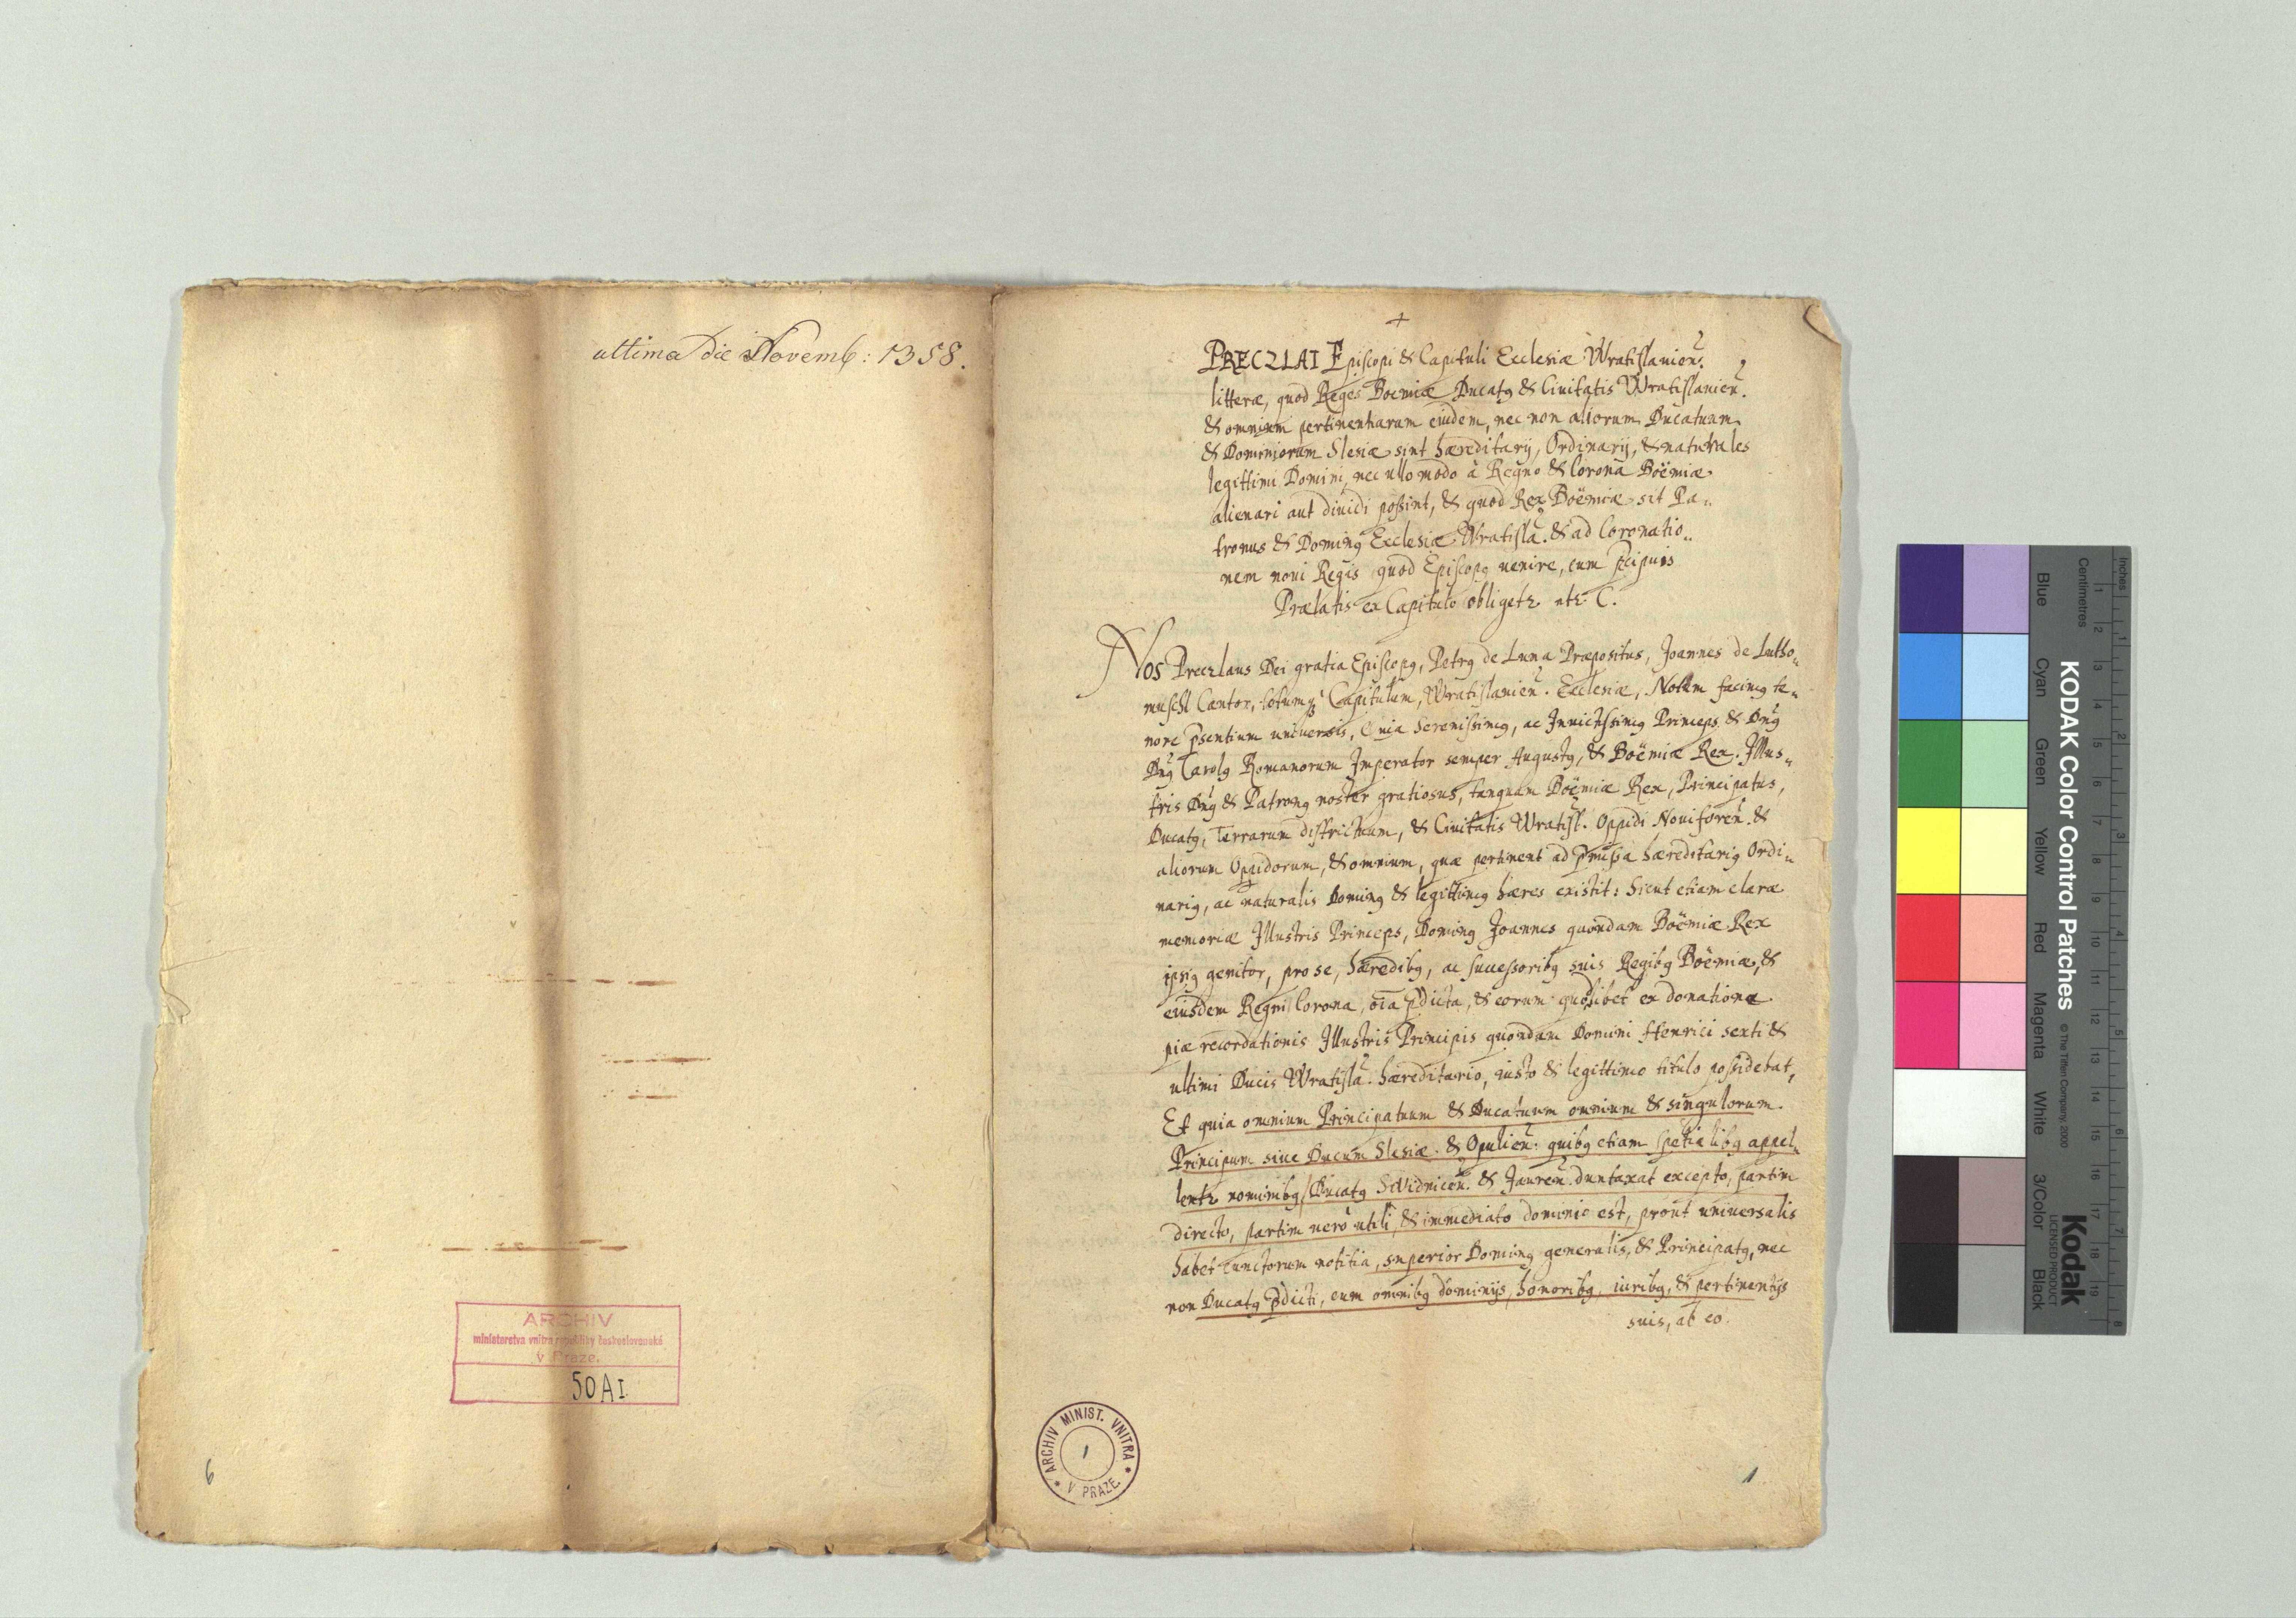 ultima die Novemb: 1358.
ARCHIV
ministerstva vnitra republiky československé
v Praze.
50 A I
6
+
PRECZLAI Episcopi & Capituli Ecclesiæ Wratislavien.
litteræ, quod Reges Boemiæ Ducatq & Civitatis Wratislavien.
& omnium pertinentiarum eiudem, nec non aliorum Ducatuum
& Dominiorum Slesiæ sint hæreditarij, Ordinarij, & naturales
legittimi Domini, nec ullo modo à Regno & Corona Boëmiæ
alienari aut diuidi poßint, & quod Rex Boëmiæ sit Pa„
tronus & Dominq Ecclesiæ Wratisla. & ad Coronatio„
nem noui Regis quod Episcopq uenire, cum pcipuis
Prælatis ex Capitulo obligetr etc. C.
Nos Preczlaus Dei gratia Episcopq, Petrq de Luna Præpositus, Joannes de Lutho„
muschl Cantor, totumq Capitulum, Wratislavien. Ecclesiæ, Notum facimq te„
nore psentium uniuersis, Quia Serenissimq, ac Inuictissimq Princeps & Dnq
Dnq Carolq Romanorum Imperator semper Augustq, & Boëmiæ Rex. Illus„
tris Dnq & Patronq noster gratiosus, tanquam Boëmiæ Rex, Principatus,
Ducatq, Terrarum districtuum, & Ciuitatis Wratisl. Oppidi Nouiforen. &
aliorum Oppidorum, & omnium, quæ pertinent ad pmissa hæreditariq Ordi„
nariq, ac naturalis Dominq & legittimq hæres existit: Sicut etiam claræ
memoriæ Illustris Princeps, Dominq Joannes quondam Boëmiæ Rex
ipsiq genitor, pro se, hæredibq, ac successoribq suis Regibq Boëmiæ, &
eiusdem Regni Corona, oia pdicta, & eorum quodlibet ex donatione
piæ recordationis Illustris Principis quondam Domini Henrici sexti &
ultimi Ducis Wratisla. hæreditario, iusto & legittimo titulo possidebat,
Et quia omnium Principatuum & Ducatuum omnium & singulorum
Principum siue Ducum Slesiæ & Opulien: quibq etiam spetialibq appel„
lentr nominibq / Ducatq Swidnicen. & Jauren. duntaxat excepto, partim
directo, partim uerò utili, & immediato dominio est, prout uniuersalis
habet cunctorum notitia, superior Dominq generalis, & Principatq, nec
non Ducatq pdicti, cum omnibq dominijs, honoribq, iuribq, & pertinentijs
suis, ab eo
ARCHIV MINIST. VNITRA
V PRAZE
1
1
KODAK Color Control Patches
© The Tiffen Company, 2000
Kodak
LICENSED PRODUCT
Inches
Centimetres
Blue
Cyan
Green
Yellow
Red
Magenta
White
3/Color
Black
1 2 3 4 5 6 7 8 9 10 11 12 13 14 15 16 17 18 19
1 2 3 4 5 6 7 8